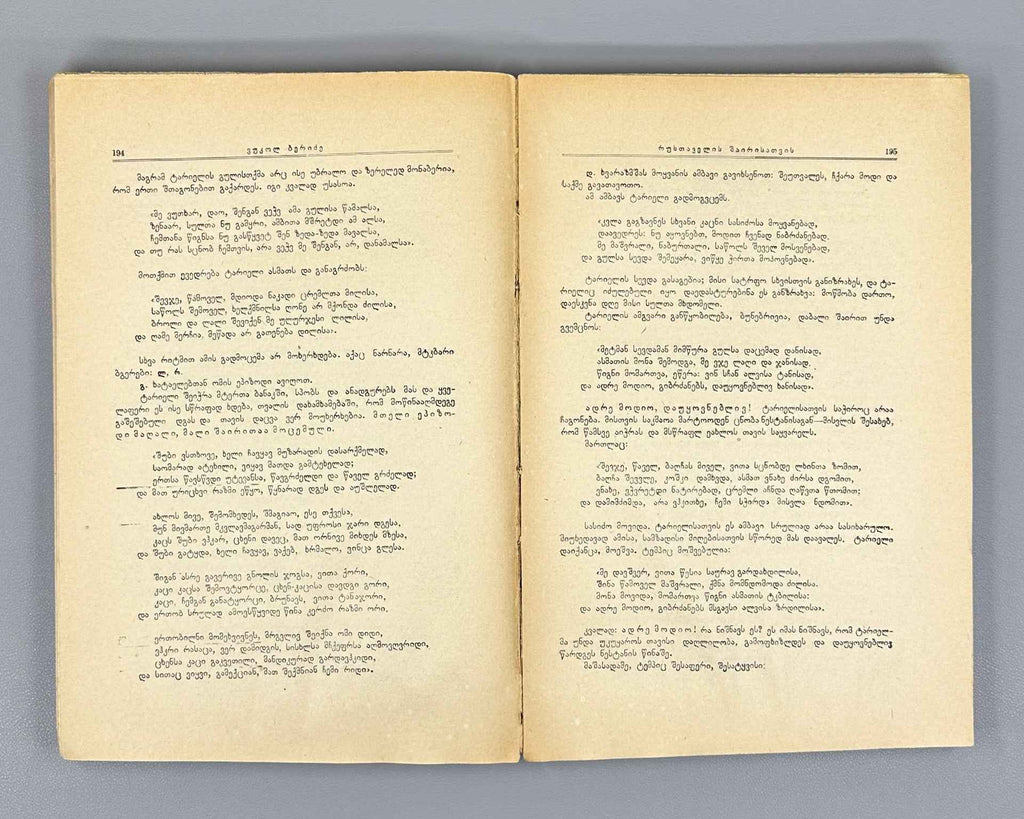 194
ვუკოლ ბერიძე
მაგრამ ტარიელის გულისთქმა არც ისე უბრალო და ზერელედ მონაბერია,
რომ ერთი შთაგონებით გაქარდეს. იგი კვალად უსასოა.
«მე ვუთხარ, დაო, შენგან ვეჭვ ამა გულისა წამალსა,
ზენაარ, სულთა ნუ გამყრი, ამბითა მშრეტდი ამ ალსა,
ჩემთანა წიგნსა ნუ გასწყვეტ შენ ზედა-ზედა მავალსა,
და თუ რას სცნობ ჩემთვის, არა ვეჭვ მე შენგან, არ, დანამალსა».
მოთქმით ევედრება ტარიელი ასმათს და განაგრძობს:
«შევჯე, წამოველ, მდიოდა ნაკადი ცრემლთა მილისა,
საწოლს შემოველ, ხელქმნილსა ღონე არ მქონდა ძილისა,
ბროლი და ლალი შევიქენ მე ულურჯესი ლილისა,
და ღამე მერჩია, მეწადა არ გათენება დილისა».
სხვა რიტმით ამის გადმოცემა არ მოხერხდება. აქაც ნარნარა, მტკბარი
ბგერები: ლ, რ.
გ. ხატაელებთან ომის ეპიზოდი ავიღოთ.
ტარიელი შეიჭრა მტერთა ბანაკში, სპობს და ანადგურებს მას და ყვე-
ლაფერი ეს ისე სწრაფად ხდება, თვალის დახამხამებაში, რომ მოწინააღმდეგე
გაშეშებული დგას და თავის დაცვა ვერ მოუხერხებია. მთელი ეპიზო-
დი მაღალი, მალი შაირითაა მოცემული.
«შუბი ვსთხოვე, ხელი ჩავყავ მუზარადის დასარქმელად,
საომარად ატეხილი, ვიყავ მათდა გამტეხელად;
ერთსა წავსწვდი უტევანსა, წავგრძელდი და წაველ გრძელად;
და მათ ურიცხვი რაზმი ეწყო, წყნარად დგეს და აუშლელად.
ახლოს მივე, შემომხედეს, შმაგიაო, ესე თქვესა,
მუნ მივმართე მკლავმაგარმან, სად უფროსი ჯარი დგესა,
კაცს შუბი ვჰკარ, ცხენი დავეც, მათ ორნივე მიხდეს მზესა,
და შუბი გატყდა, ხელი ჩავყავ, ვაქებ, ხრმალო, ვინცა გლესა.
შიგან ასრე გავერივე გნოლის ჯოგსა, ვითა ქორი,
კაცი კაცსა შემოვტყორცე, ცხენ-კაცისა დავდგი გორი,
კაცი, ჩემგან განატყორცი, ბრუნავს, ვითა ტანაჯორი,
და ერთობ სრულად ამოვსწყვიდე წინა კერძო რაზმი ორი.
ერთობილნი მომეხვივნეს, მრგვლივ შეიქნა ომი დიდი,
ვჰკრი რასაცა, ვერ დამიდგის, სისხლსა მჩქეფრსა აღმოვღვრიდი,
ცხენსა კაცი გაკვეთილი, მანდიკურად გარდავჰკიდი,
და სითაც ვიყვი, გამექციან, მათ შექმნიან ჩემი რიდი».
რუსთაველის შაირისათვის
195
დ. ხვარაზმშას მოყვანის ამბავი გავიხსენოთ: შეუთვალეს, ჩქარა მოდი და
საქმე გავათავოთო.
ამ ამბავს ტარიელი გადმოგვცემს.
«კვლა გაგზავნეს სხვანი კაცნი სასიძოსა მოყვანებად,
დაავედრეს: ნუ აყოვნებთ, მოდით ჩვენად ნაბრძანებად.
მე მაშვრალი, ნაბურთალი, საწოლს შეველ მოსვენებად,
და გულსა სევდა შემეყარა, ვიწყე ჭირთა მოპოვნებად».
ტარიელის სევდა გასაგებია; მისი სატრფო სხვისთვის განიზრახეს, და ტა-
რიელიც იძულებული იყო დაედასტურებინა ეს განზრახვა: მოწმობა დართო,
დაესკვნა დღე მისი სულთა მხდომელი.
ტარიელის ამგვარი განწყობილება, ბუნებრივია, დაბალი შაირით უნდა
გვემცნოს:
«მეტმან სევდამან მიმწურა გულსა დაცემად დანისად,
ასმათის მონა შემოდგა, მე ვჯე ლაღი და ჯანისად,
წიგნი მომართვა, ეწერა: ვინ სჩან ალვისა ტანისად,
და ადრე მოდიო, გიბრძანებს, დაუყოვნებლივ ხანისად».
ადრე მოდიო, დაუყოვნებლივ! ტარიელისათვის საჭიროც არაა
ჩაგონება. მისთვის საკმაოა მარტოოდენ ცნობა ნესტანისაგან—მისვლის შესახებ,
რომ წამსვე აიჭრას და მსწრაფლ ეახლოს თავის საყვარელს.
მართლაც:
«შევჯე, წაველ, ბაღჩას მიველ, ვითა სცნობდე ლხინთა ზომით,
ბაღჩა შევვლე, კოშკი დამხვდა, ასმათ ვნახე ძირსა დგომით,
ვნახე, ვჰკვრეტდი ნატირებად, ცრემლი აჩნდა ღაწვთა წთომით;
და დამიმძიმდა, არა ვჰკითხე, ჩემი სჭირდა მისვლა ნდომით».
სასიძო მოვიდა, ტარიელისათვის ეს ამბავი სრულიად არაა სასიხარულო.
მიუხედავად ამისა, სამზადისი მიღებისათვის სწორედ მას დაავალეს. ტარიელი
დაიქანცა, მოეშვა. ტემპიც მოშვებულია:
«მე დავშვერ, ვითა წესია საურავ გარდახდილისა,
შინა წამოველ მაშვრალი, ქმნა მომნდომოდა ძილისა.
მონა მოვიდა, მომართვა წიგნი ასმათის ტკბილისა:
და ადრე მოდიო, გიბრძანებს მსგავსი ალვისა ზრდილისა».
კვალად: ადრე მოდიო! რა ნიშნავს ეს? ეს იმას ნიშნავს, რომ ტარიელ-
მა უნდა უკუყაროს თავისი დაღლილობა, გამოფხიზლდეს და დაუყოვნებლივ
წარდგეს ნესტანის წინაშე.
მაშასადამე, ტემპიც შესაფერი, შესატყვისი: